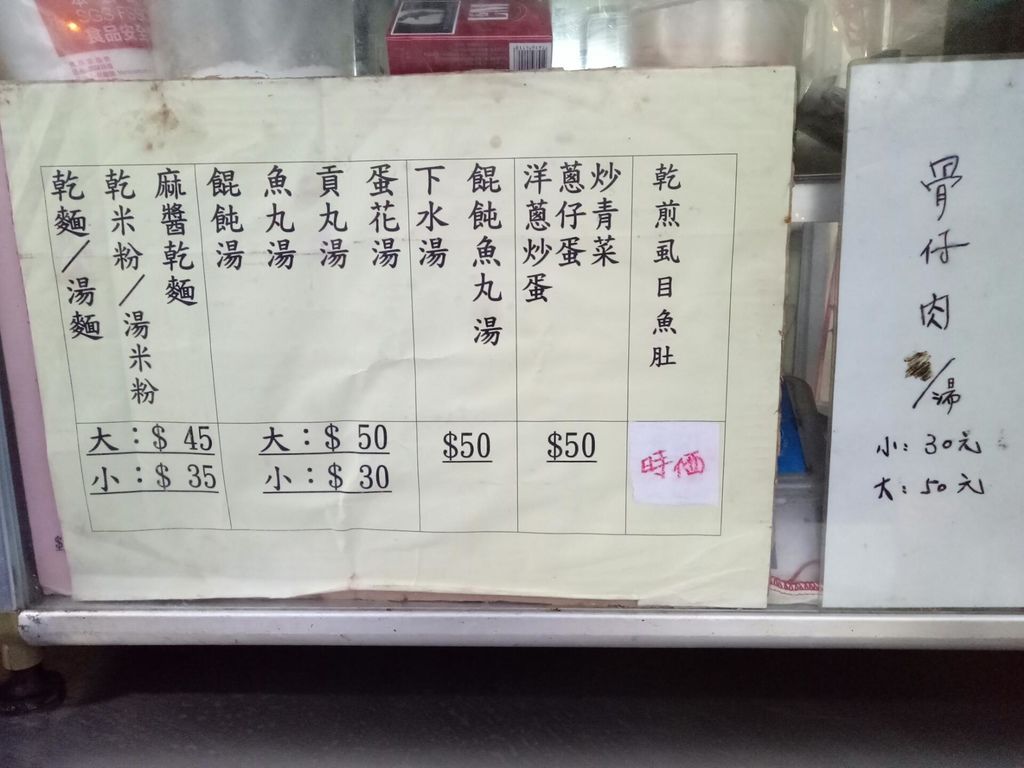 食品安全
乾麵／湯麵
乾米粉／湯米粉
麻醬乾麵
大：$ 45
小：$ 35
餛飩湯
魚丸湯
貢丸湯
蛋花湯
大：$ 50
小：$ 30
下水湯
餛飩魚丸湯
$50
洋蔥炒蛋
蔥仔蛋
炒青菜
$50
乾煎虱目魚肚
時価
骨仔肉／湯
小：30元
大：50元